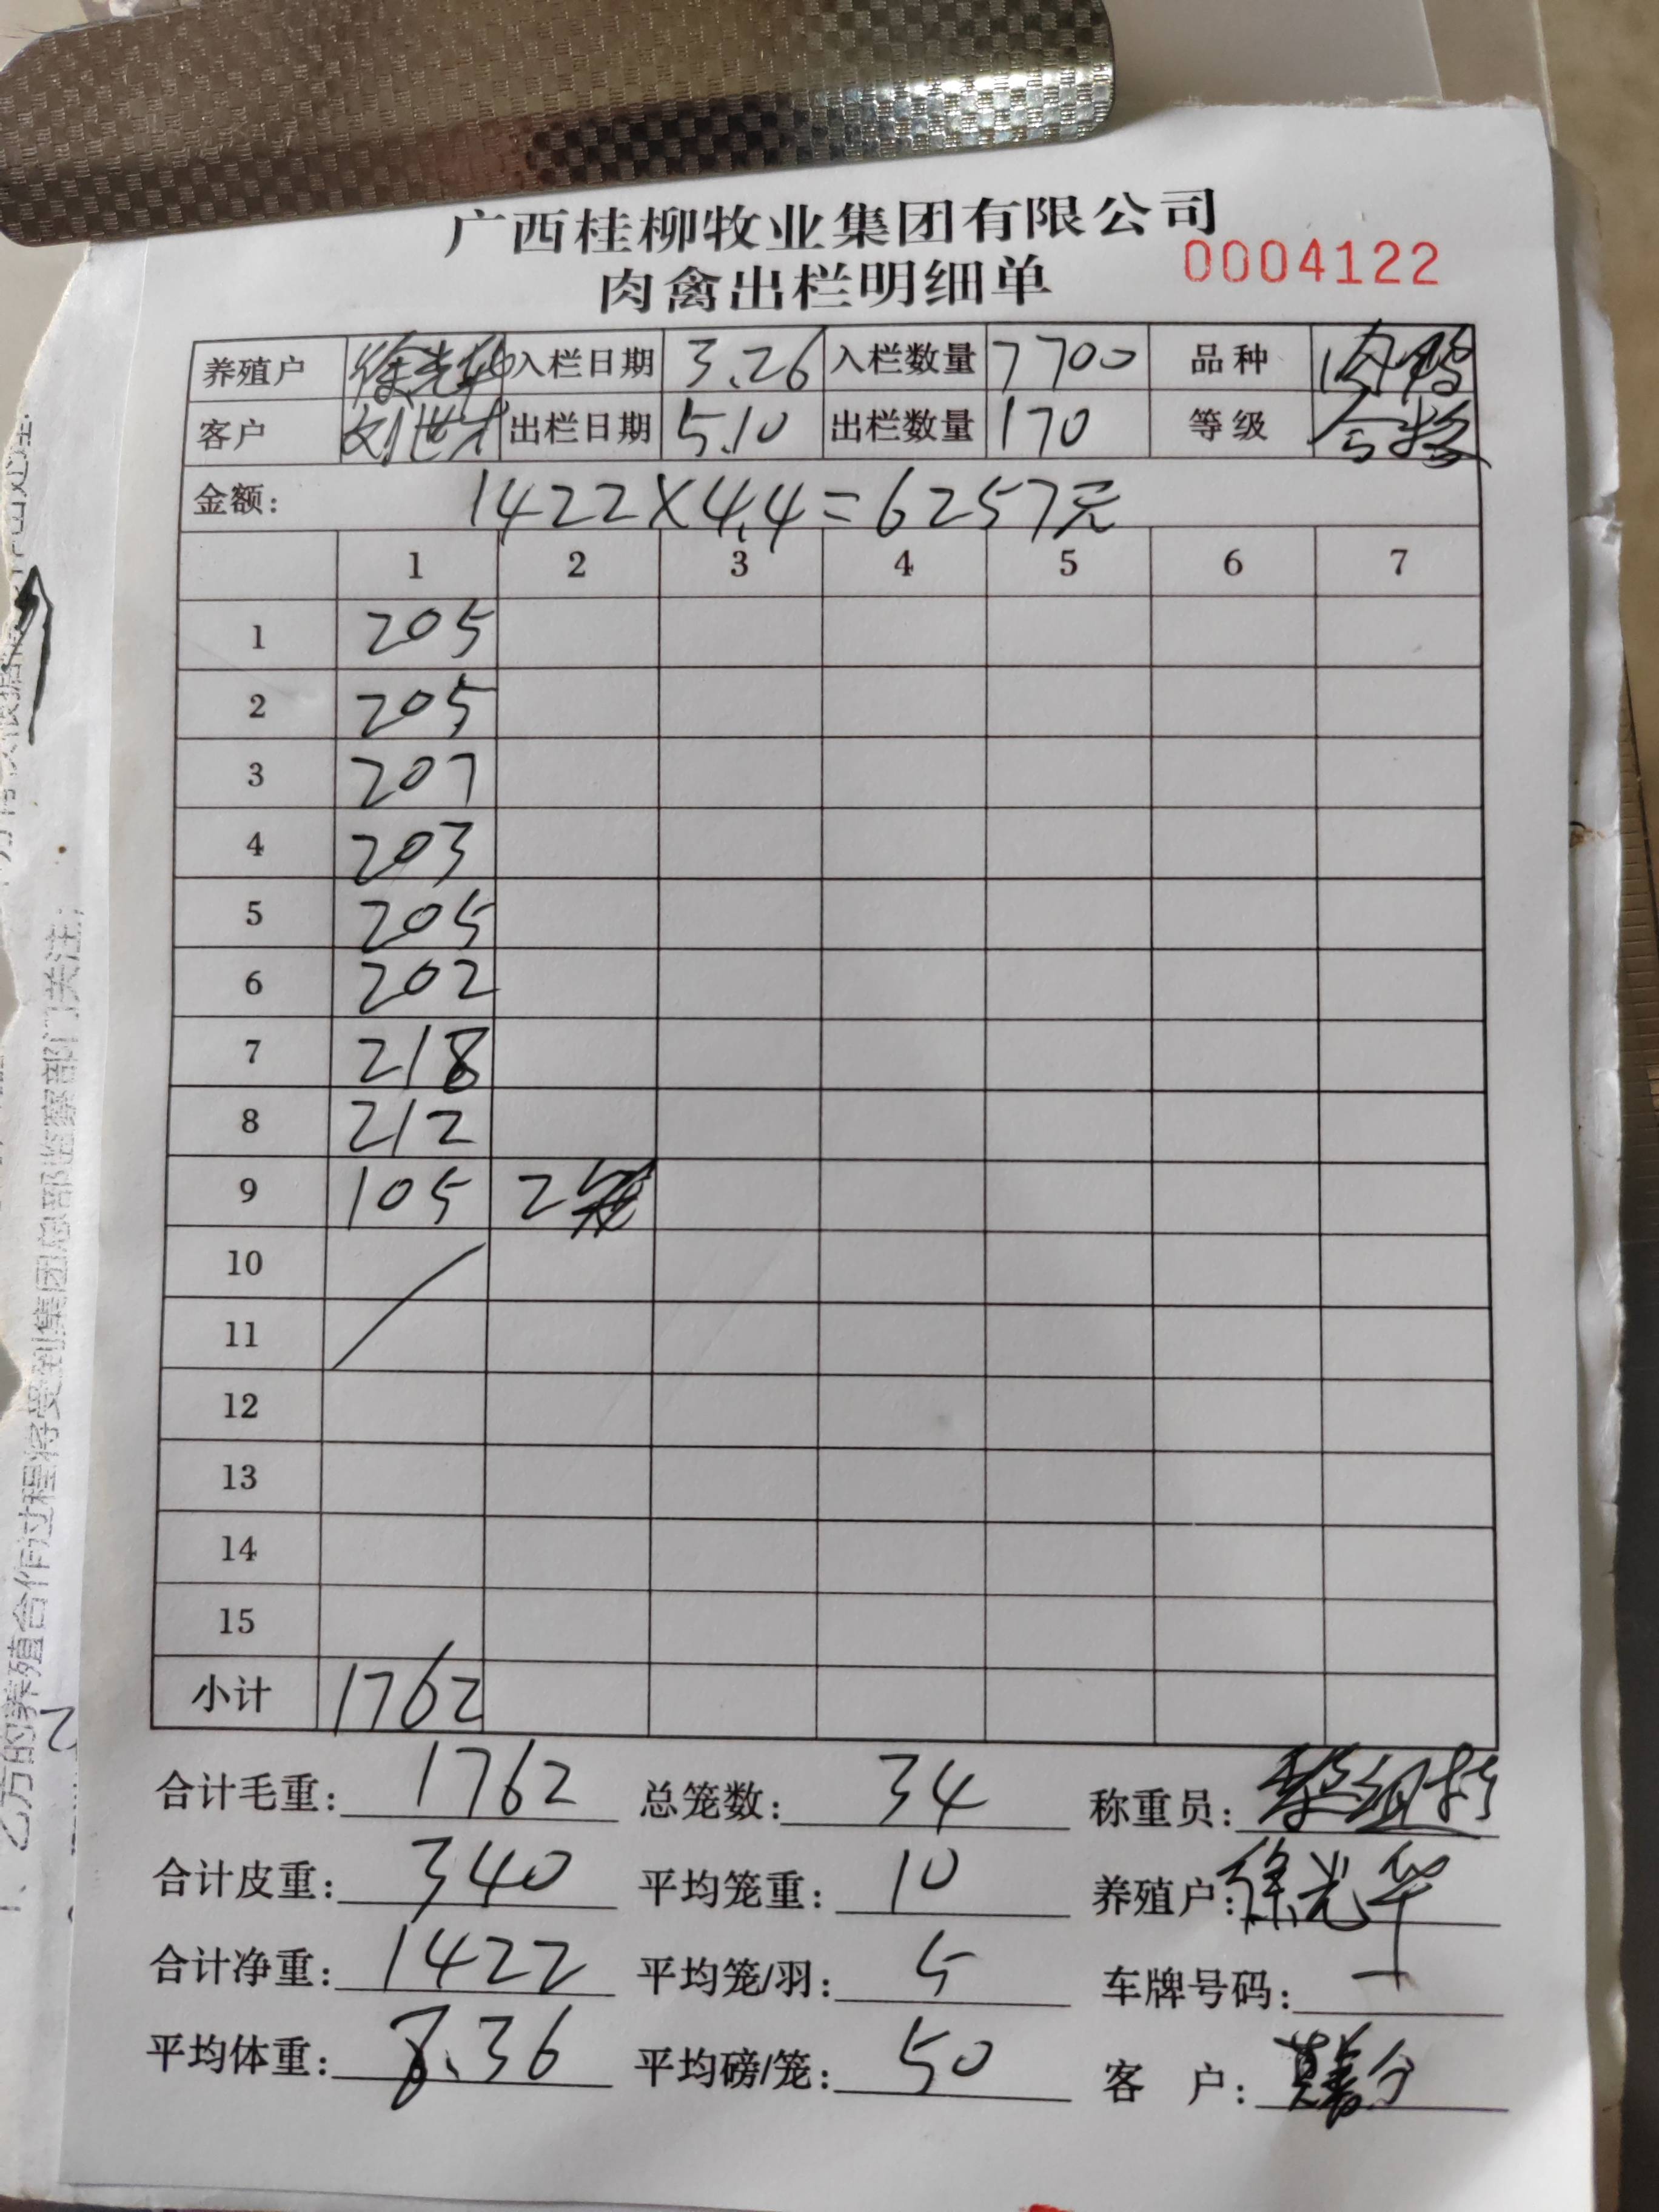 广西桂柳牧业集团有限公司
肉禽出栏明细单 0004122
养殖户 徐光华 入栏日期 3.26 入栏数量 7700 品种 肉鸭
客户 刘世才 出栏日期 5.10 出栏数量 170 等级 合格
金额: 1422×4.4=6257元
1 2 3 4 5 6 7
1 205
2 205
3 207
4 203
5 205
6 202
7 218
8 212
9 105 2笼
10
11
12
13
14
15
小计 1762
合计毛重: 1762 总笼数: 34 称重员:
合计皮重: 340 平均笼重: 10 养殖户: 徐光华
合计净重: 1422 平均笼/羽: 5 车牌号码:
平均体重: 8.36 平均磅/笼: 50 客 户:
乙方的养殖合作过程将受到集团总部监察部门关注;